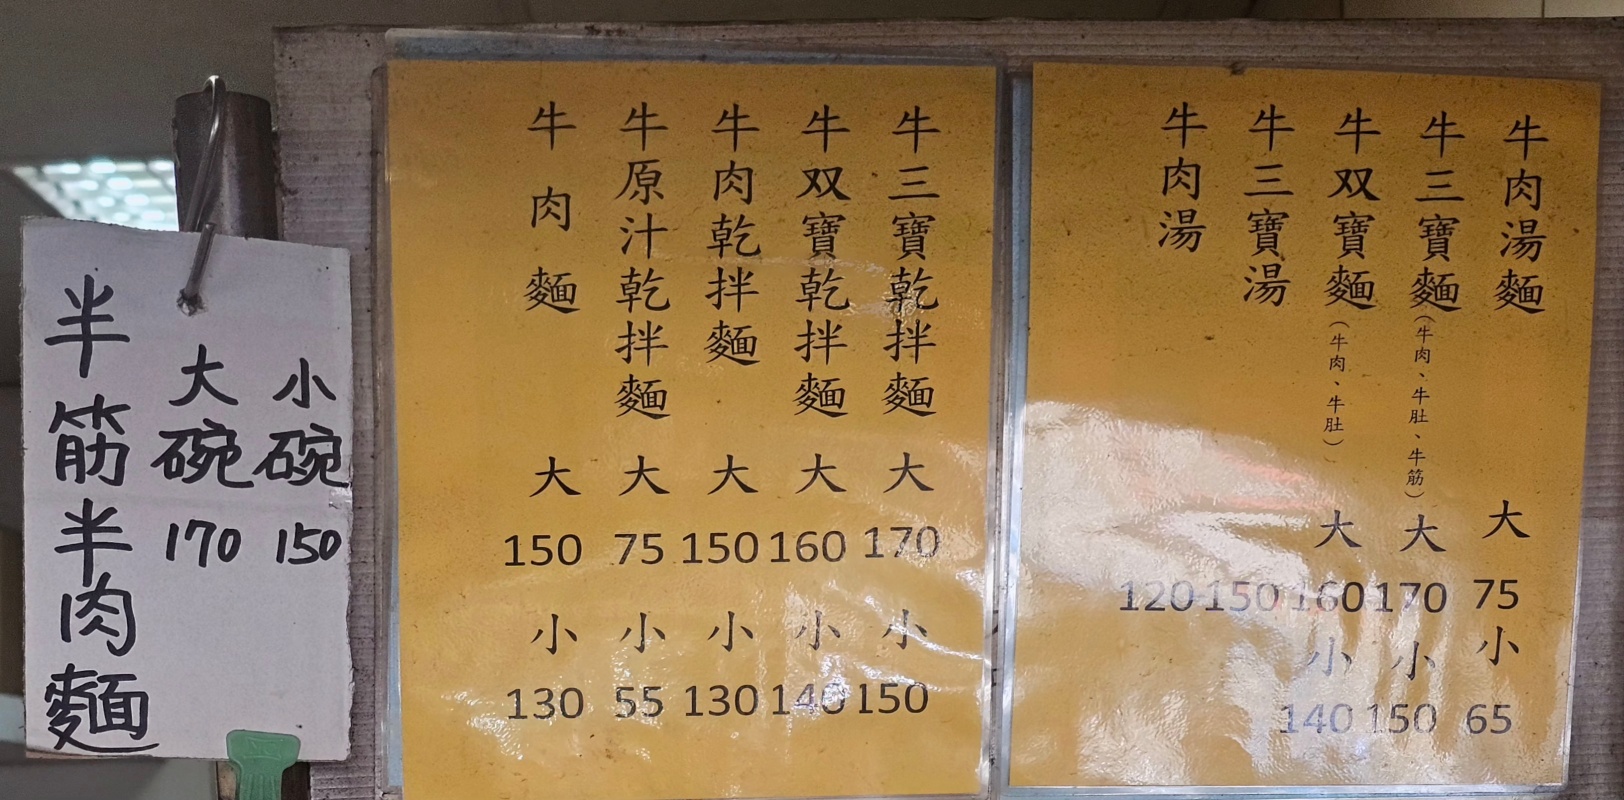 牛肉湯麵 大 75 小 65
牛三寶麵（牛肉、牛肚、牛筋） 大 170 小 150
牛双寶麵（牛肉、牛肚） 大 160 小 140
牛三寶湯 150
牛肉湯 120
牛三寶乾拌麵 大 170 小 150
牛双寶乾拌麵 大 160 小 140
牛肉乾拌麵 大 150 小 130
牛原汁乾拌麵 大 75 小 55
牛肉麵 大 150 小 130
小碗 150
大碗 170
半筋半肉麵